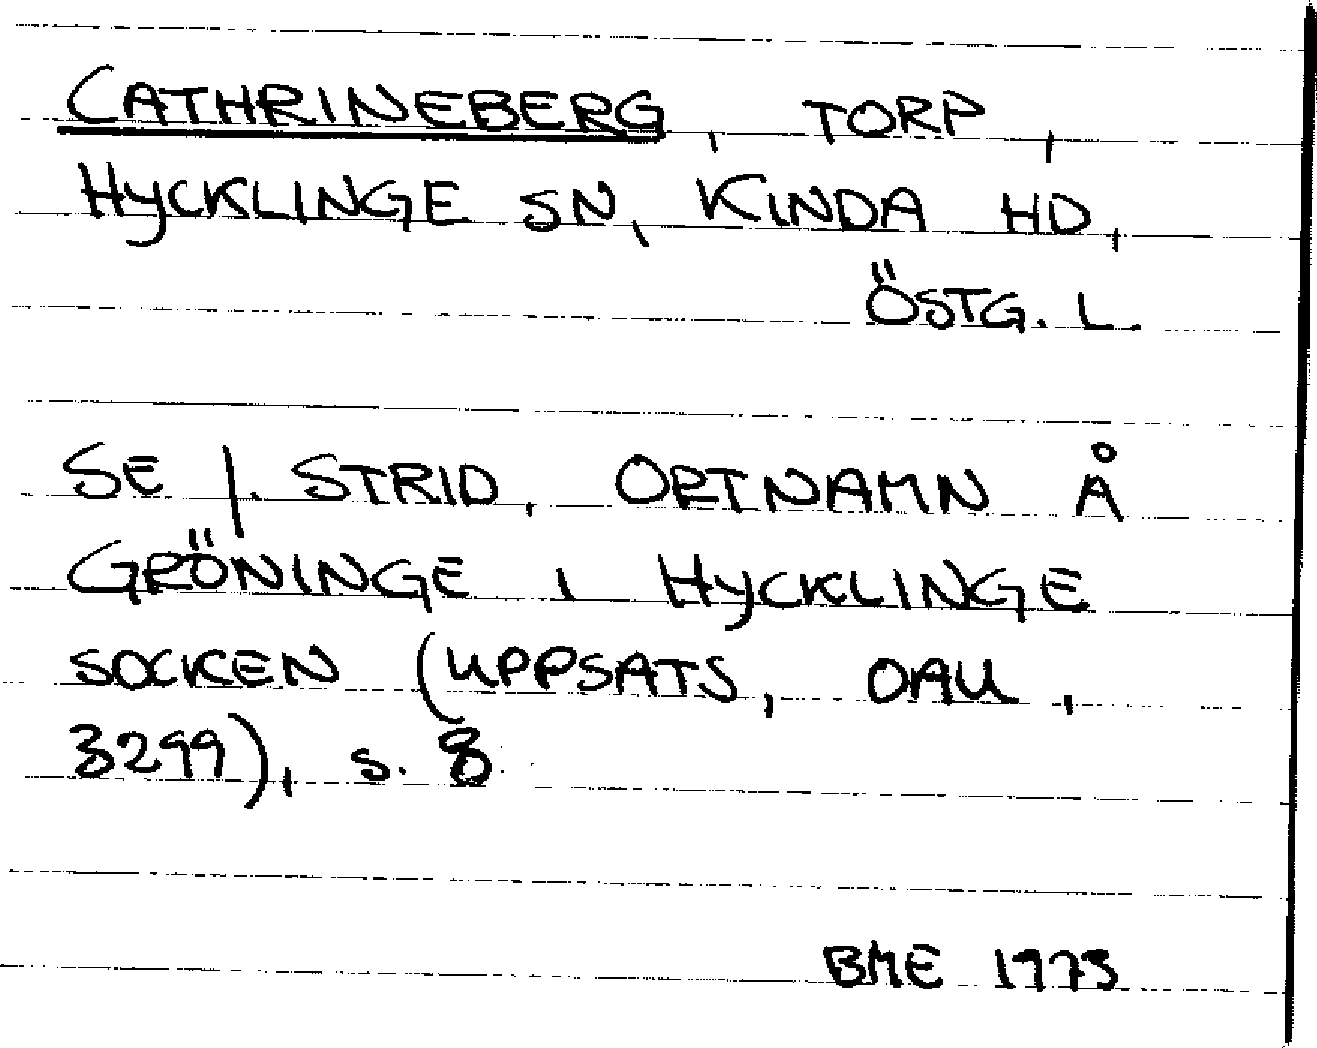 CATHRINEBERG, TORP,
HYCKLINGE SN, KINDA HD,
ÖSTG. L.
SE I. STRID, ORTNAMN Å
GRÖNINGE I HYCKLINGE
SOCKEN (UPPSATS, OAU,
3299), s. 8
BME 1973